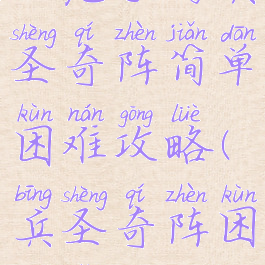 shèng qí zhèn jiǎn dān
圣奇阵简单
kùn nán gōng lüè
困难攻略(
bīng shèng qí zhèn kùn
兵圣奇阵困